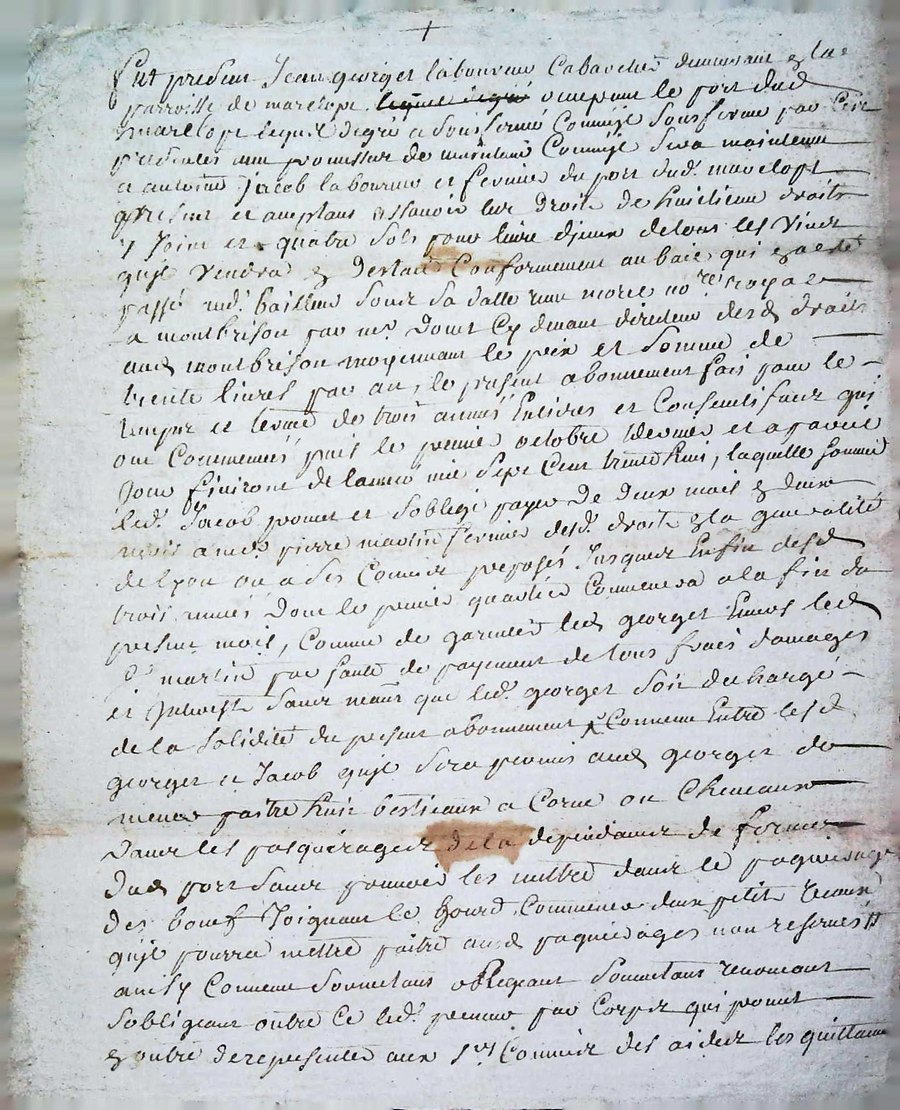 +
Fut present Jean georges laboureur Cabaretier demeurant en la
parroisse de marclopt lequel degré occupant le port dud
marclopt lequel degré a sousfermé comme il sousferme par ces
presentes avec promesse de maintenir Comme il sera maintenu
a antoine Jacob laboureur et fermier du port dud. marclopt
present et acceptant assavoir les droits de huitieme droits
y Joint et quatre sols pour livre d'jceux de tous les vins
qu'jl vendra en detail Conformement au bail qui en a été
passé aud. bailleur sous sa datte recu morel nore royal
a montbrison par mr. Cy devant directeur desd droits
aud montbrison moyennant le prix et somme de
trente livres par an, le present abonnement fait pour le
temps et terme de trois années Entieres et Consecutifves qui
ont Commencés puis le premier octobre dernier et a pareil
Jour finiront de l'année mil sept Cent trente huit, laquelle somme
led. Jacob promet et s'oblige payer de deux mois en deux
mois a me pierre martin fermier desd. droits en la generalité
de Lyon ou a ses Commis preposés Jusques Enfin desd
trois années dont le premier quartier Commencera a la fin du
present mois, Comme de garantir led georges Envers led
Sr martin par faute de payement de tous frais damages
et Interests sans neant que led. georges soit dechargé
de la solidité du present abonnement Convenu Entre lesd
georges et Jacob qu'jl sera permis aud georges de
mener paitre huit bestieaux a Corne ou Chevaux
dans les pasquerages de la dependance de
dud port sans pouvoir les mettre dans le paquerage
des boeufs Joignant le gourd, Comme deux petits veaux
qu'jl pourra mettre paitre aud paquerages non reservés
ainsy Convenu soumetans obligeant soumetans renoncant
s'obligeant outre ce led. preneur par Corps qui promet
en outre de representer aux srs Commis des aides les quittances